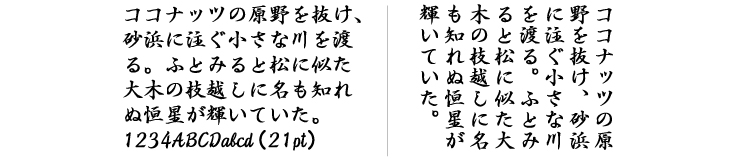 ココナッツの原野を抜け、
砂浜に注ぐ小さな川を渡
る。ふとみると松に似た
大木の枝越しに名も知れ
ぬ恒星が輝いていた。
1234ABCDabcd (21pt)
ココナッツの原
野を抜け、砂浜
に注ぐ小さな川
を渡る。ふとみ
ると松に似た大
木の枝越しに名
も知れぬ恒星が
輝いていた。